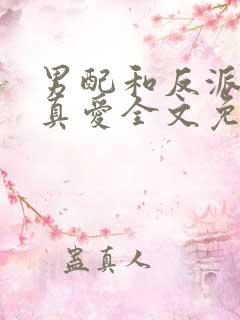 男配和反派
真爱全文免
蛊真人